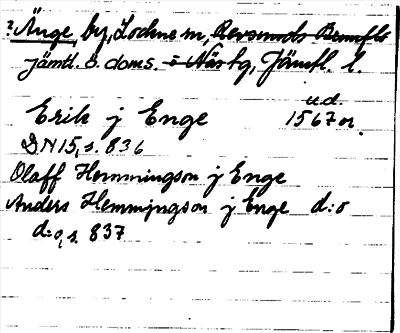 ? Änge, by, Lockne sn, Revsunds
jämtl. d. doms. Jämtl. l.
u.d.
Erik j Enge 1567 or.
DN15, s. 836
Olaff Hemmingson j Enge
Anders Hemmjngson j Enge d:o
d:o, s. 837